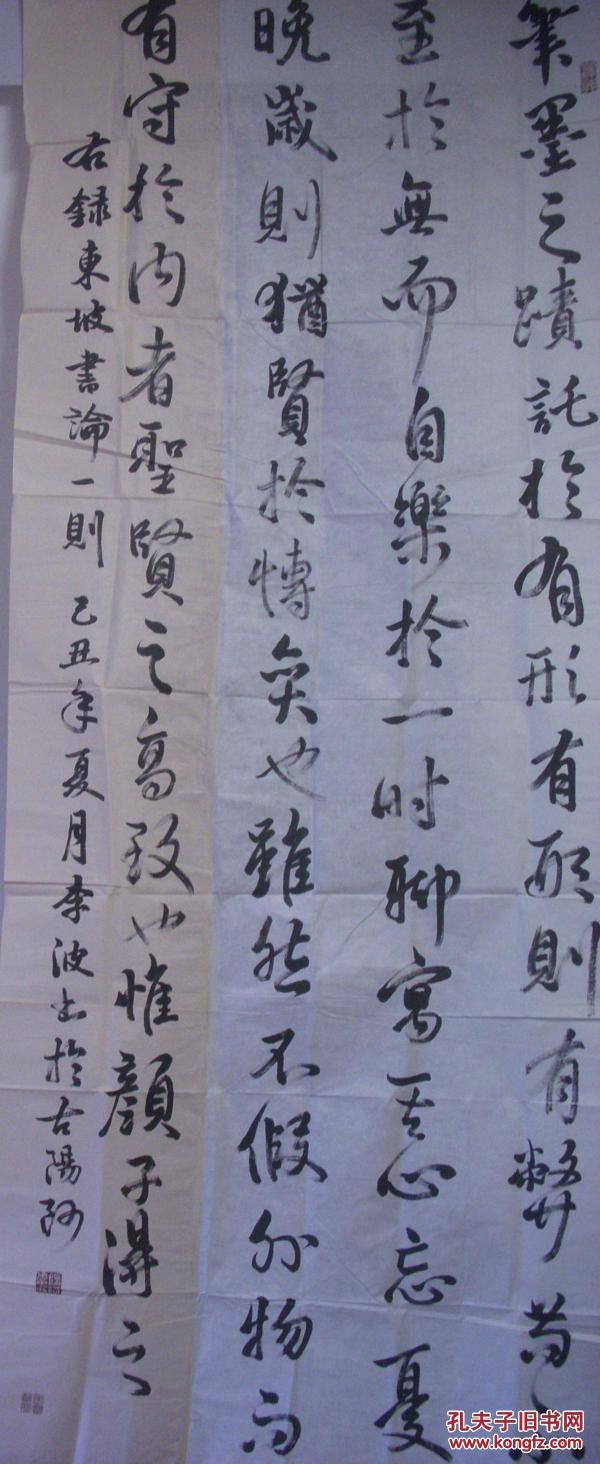 筆墨之蹟託於有形有形則有弊苟不
至於無而自樂於一時聊寓其心忘憂
晚歲則猶賢於博奕也雖然不假外物而
有守於内者聖賢之高致也惟顏子得之
右録東坡書論一則 己丑年夏月李波書於古陽阿
孔夫子旧书网
www.kongfz.com